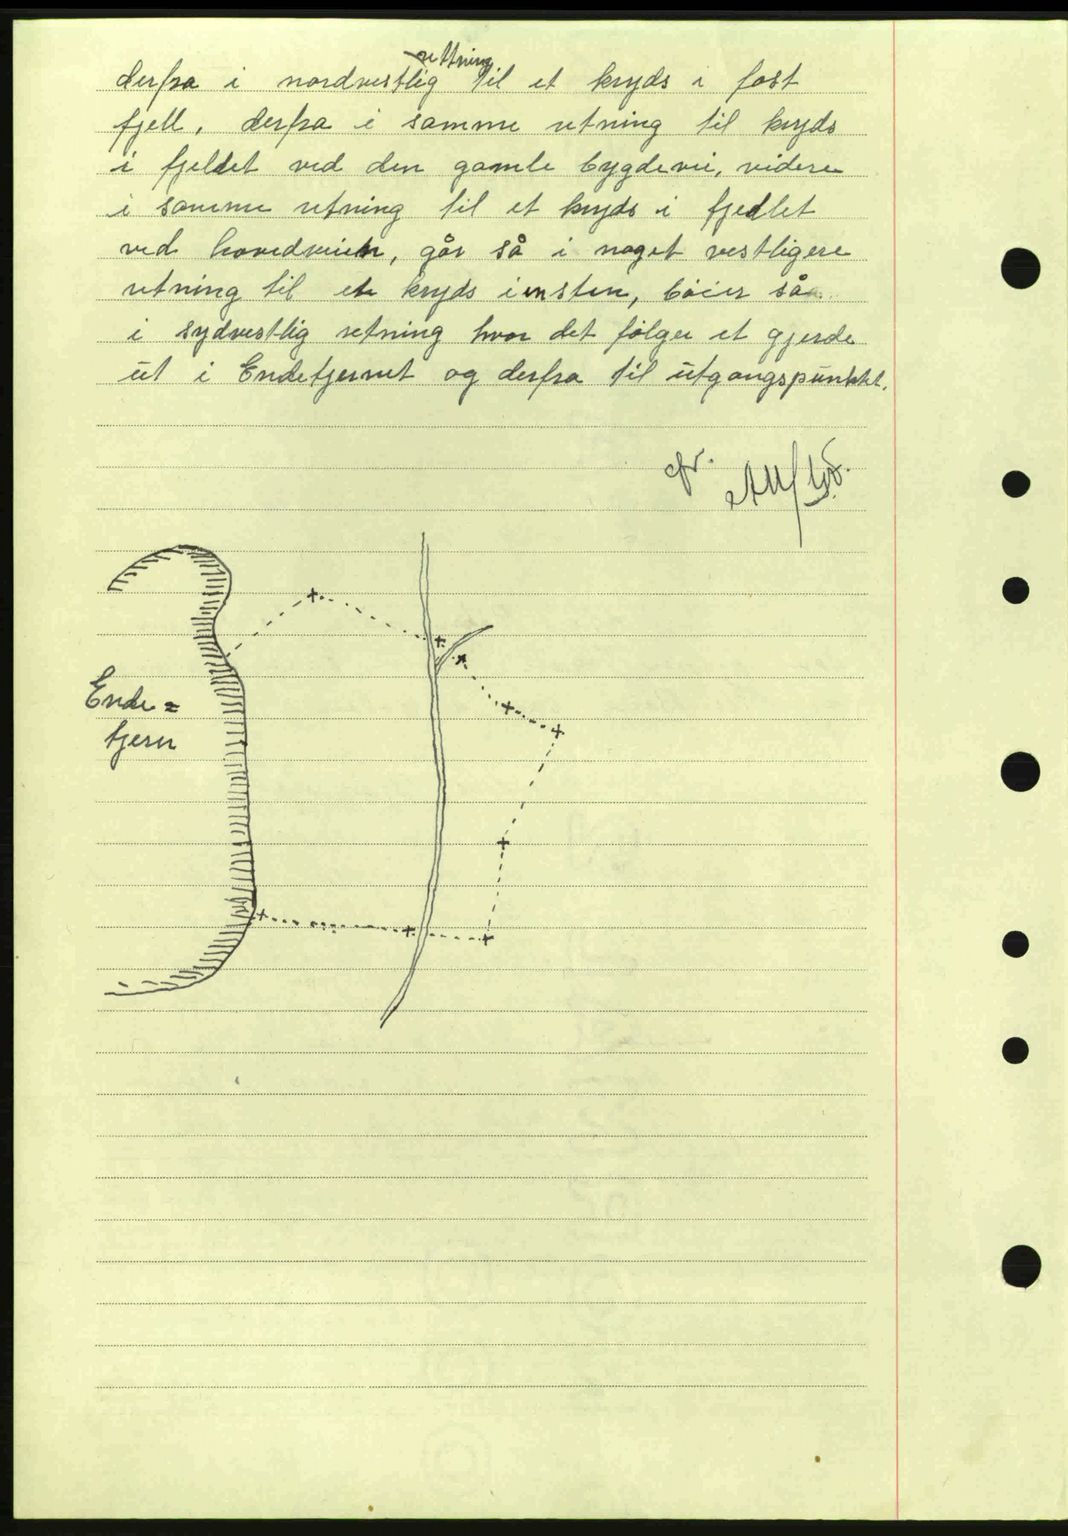 retning
derfra i nordvestlig til et kryds i fast
fjell, derfra i samme retning til kryds
i fjeldet ved den gamle bygdevei, videre
i samme retning til et kryds i fjellet
ved hovedveien, går så i noget vestligere
retning til et kryds i en sten, bøier så
i sydvestlig retning hvor det følger et gjerde
ut i Endetjernet og derfra til utgangspunktet.
Ende=
tjern